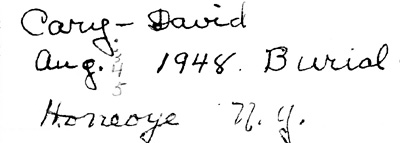 Cary - David
Aug. 1948. Burial
345
Honeoye N.Y.